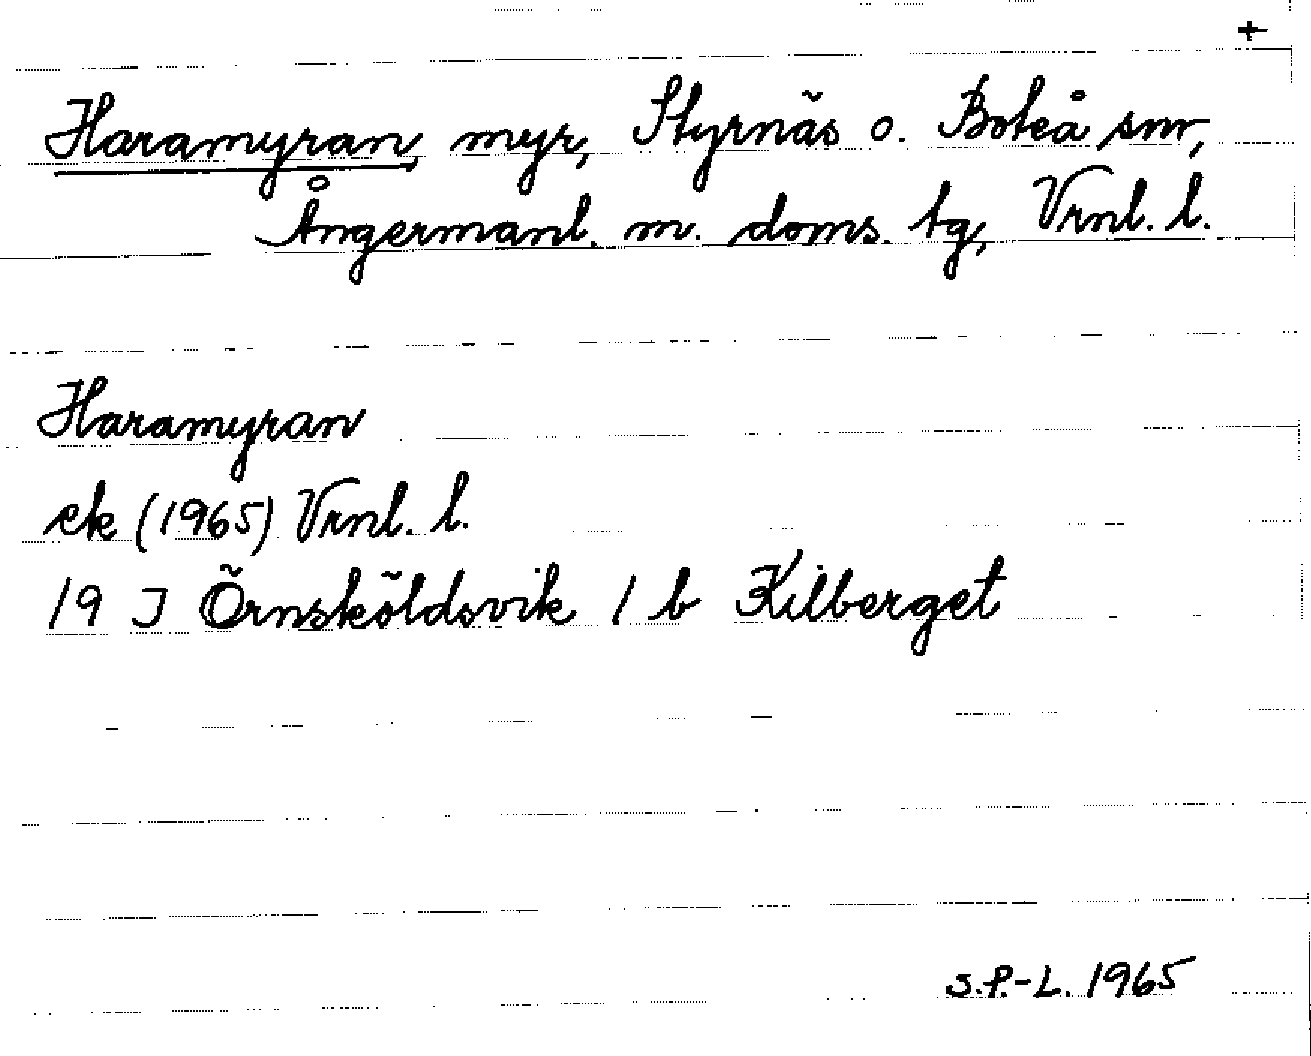 +
Haramyran, myr, Styrnäs o. Boteå snr,
Ångermanl. m. doms. tg, Vrnl. l.
Haramyran
ek (1965) Vrnl. l.
19 J Örnsköldsvik 1 b Kilberget
S.P.-L. 1965